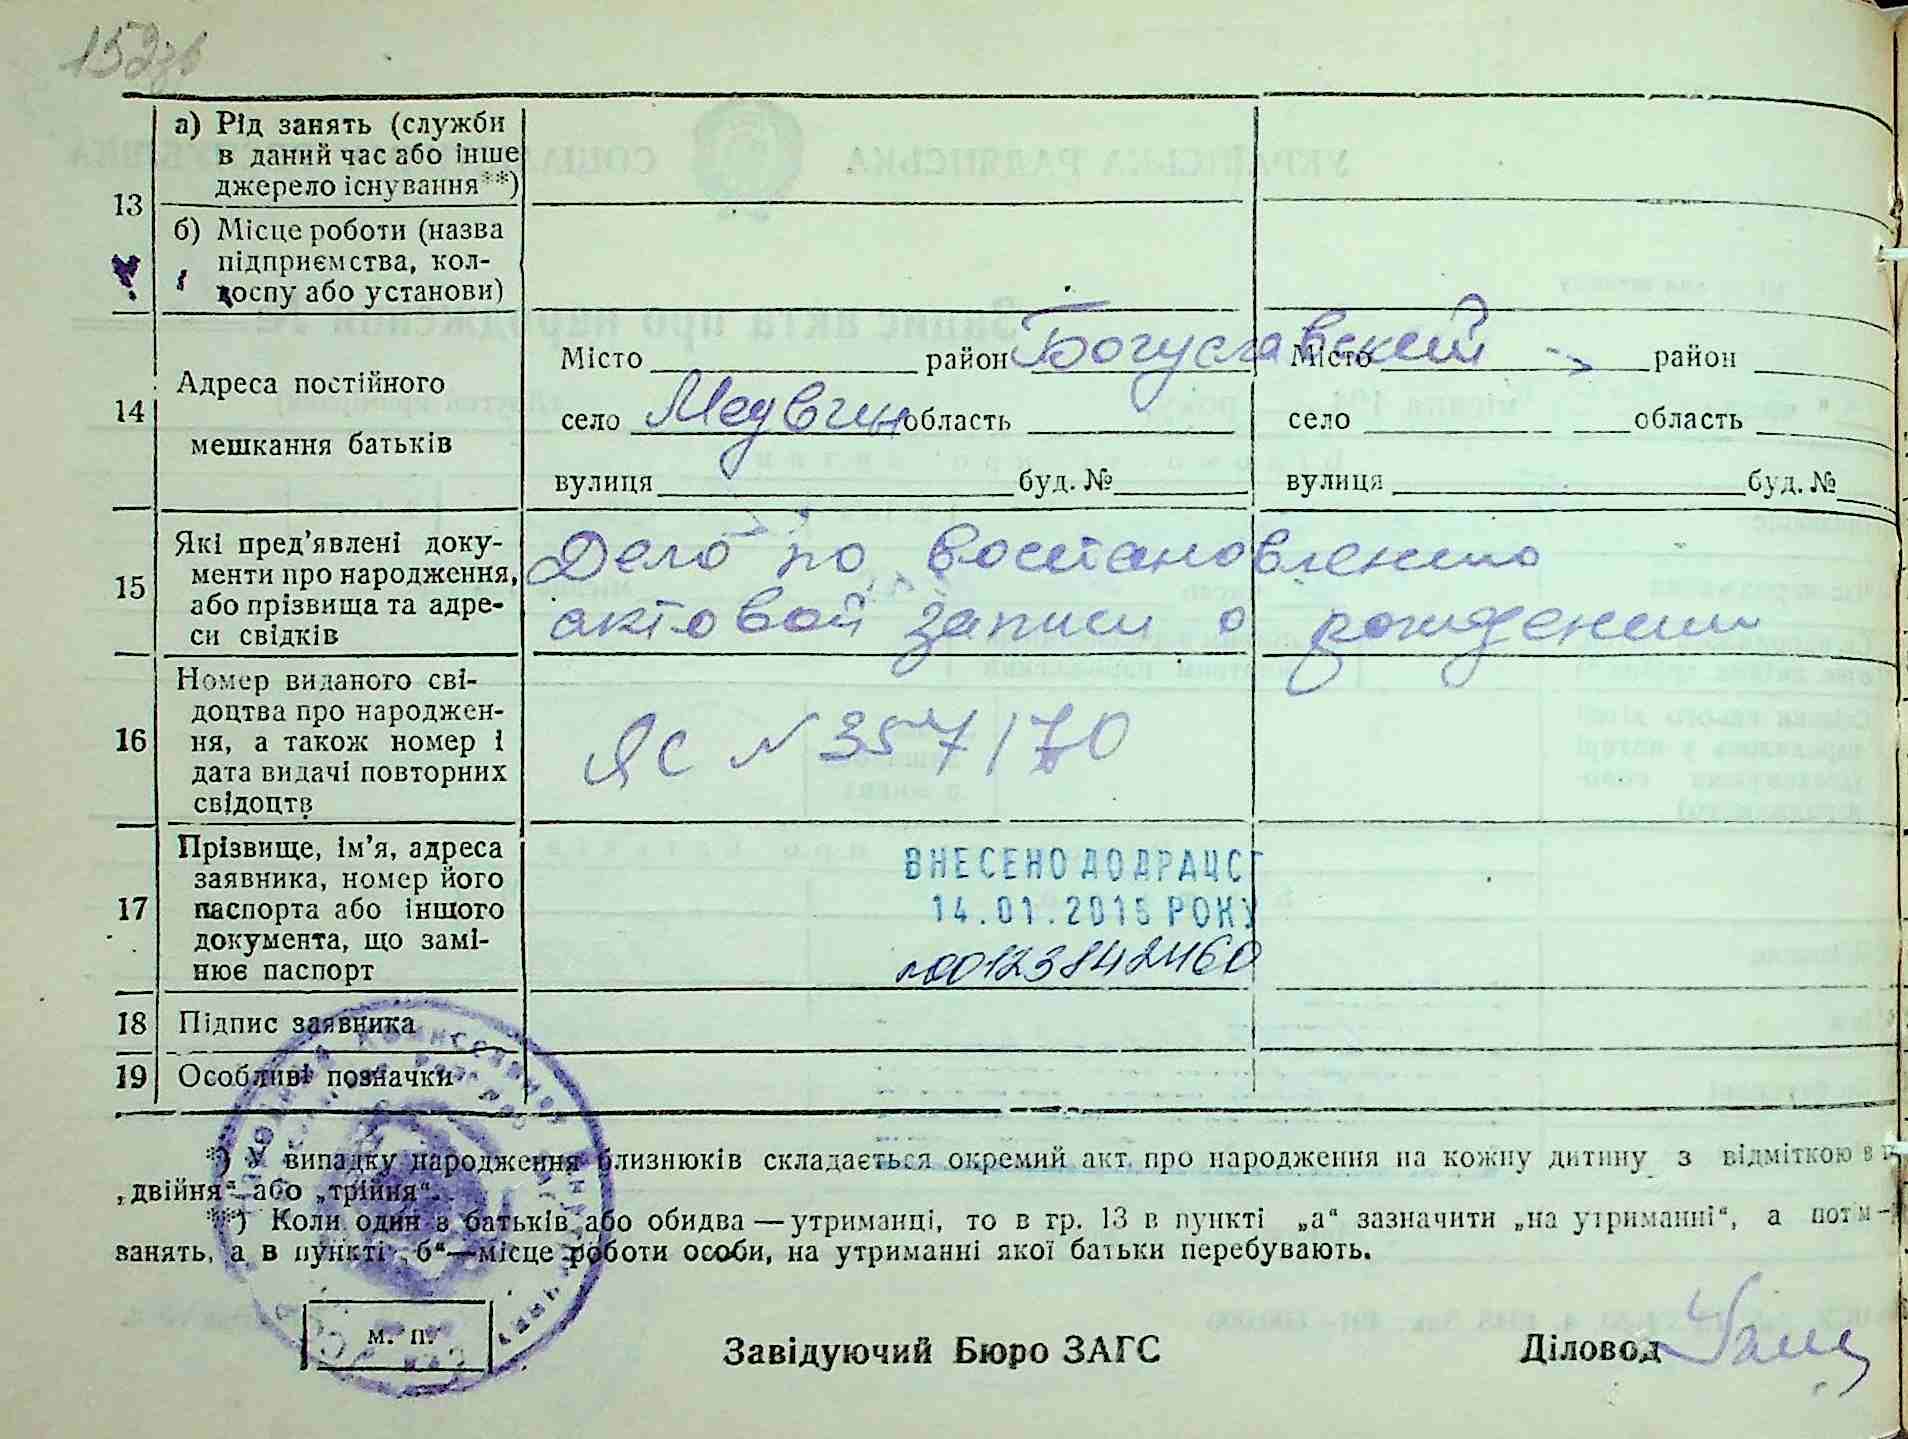 152зв
13
а) Рід занять (служби
в даний час або інше
джерело існування**)
б) Місце роботи (назва
підприємства, кол-
госпу або установи)
14
Адреса постійного
мешкання батьків
Місто район Богуславский Місто район
село Медвин область село область
вулиця буд. № вулиця буд. №
15
Які пред’явлені доку-
менти про народження,
або прізвища та адре-
си свідків
Дело по восстановлению
актовой записи о рождении
16
Номер виданого сві-
доцтва про народжен-
ня, а також номер і
дата видачі повторних
свідоцтв
ЯС № 357170
17
Прізвище, ім’я, адреса
заявника, номер його
паспорта або іншого
документа, що замі-
нює паспорт
ВНЕСЕНО ДО ДРАЦСГ
14.01.2015 РОКУ
№00123842460
18 Підпис заявника
19 Особливі позначки
*) У випадку народження близнюків складається окремий акт про народження на кожну дитину з відміткою в
„двійня“ або „трійня“.
**) Коли один з батьків або обидва — утриманці, то в гр. 13 в пункті „а“ зазначити „на утриманні“, а потім
занять, а в пункті „б“—місце роботи особи, на утриманні якої батьки перебувають.
м. п.
Завідуючий Бюро ЗАГС
Діловод